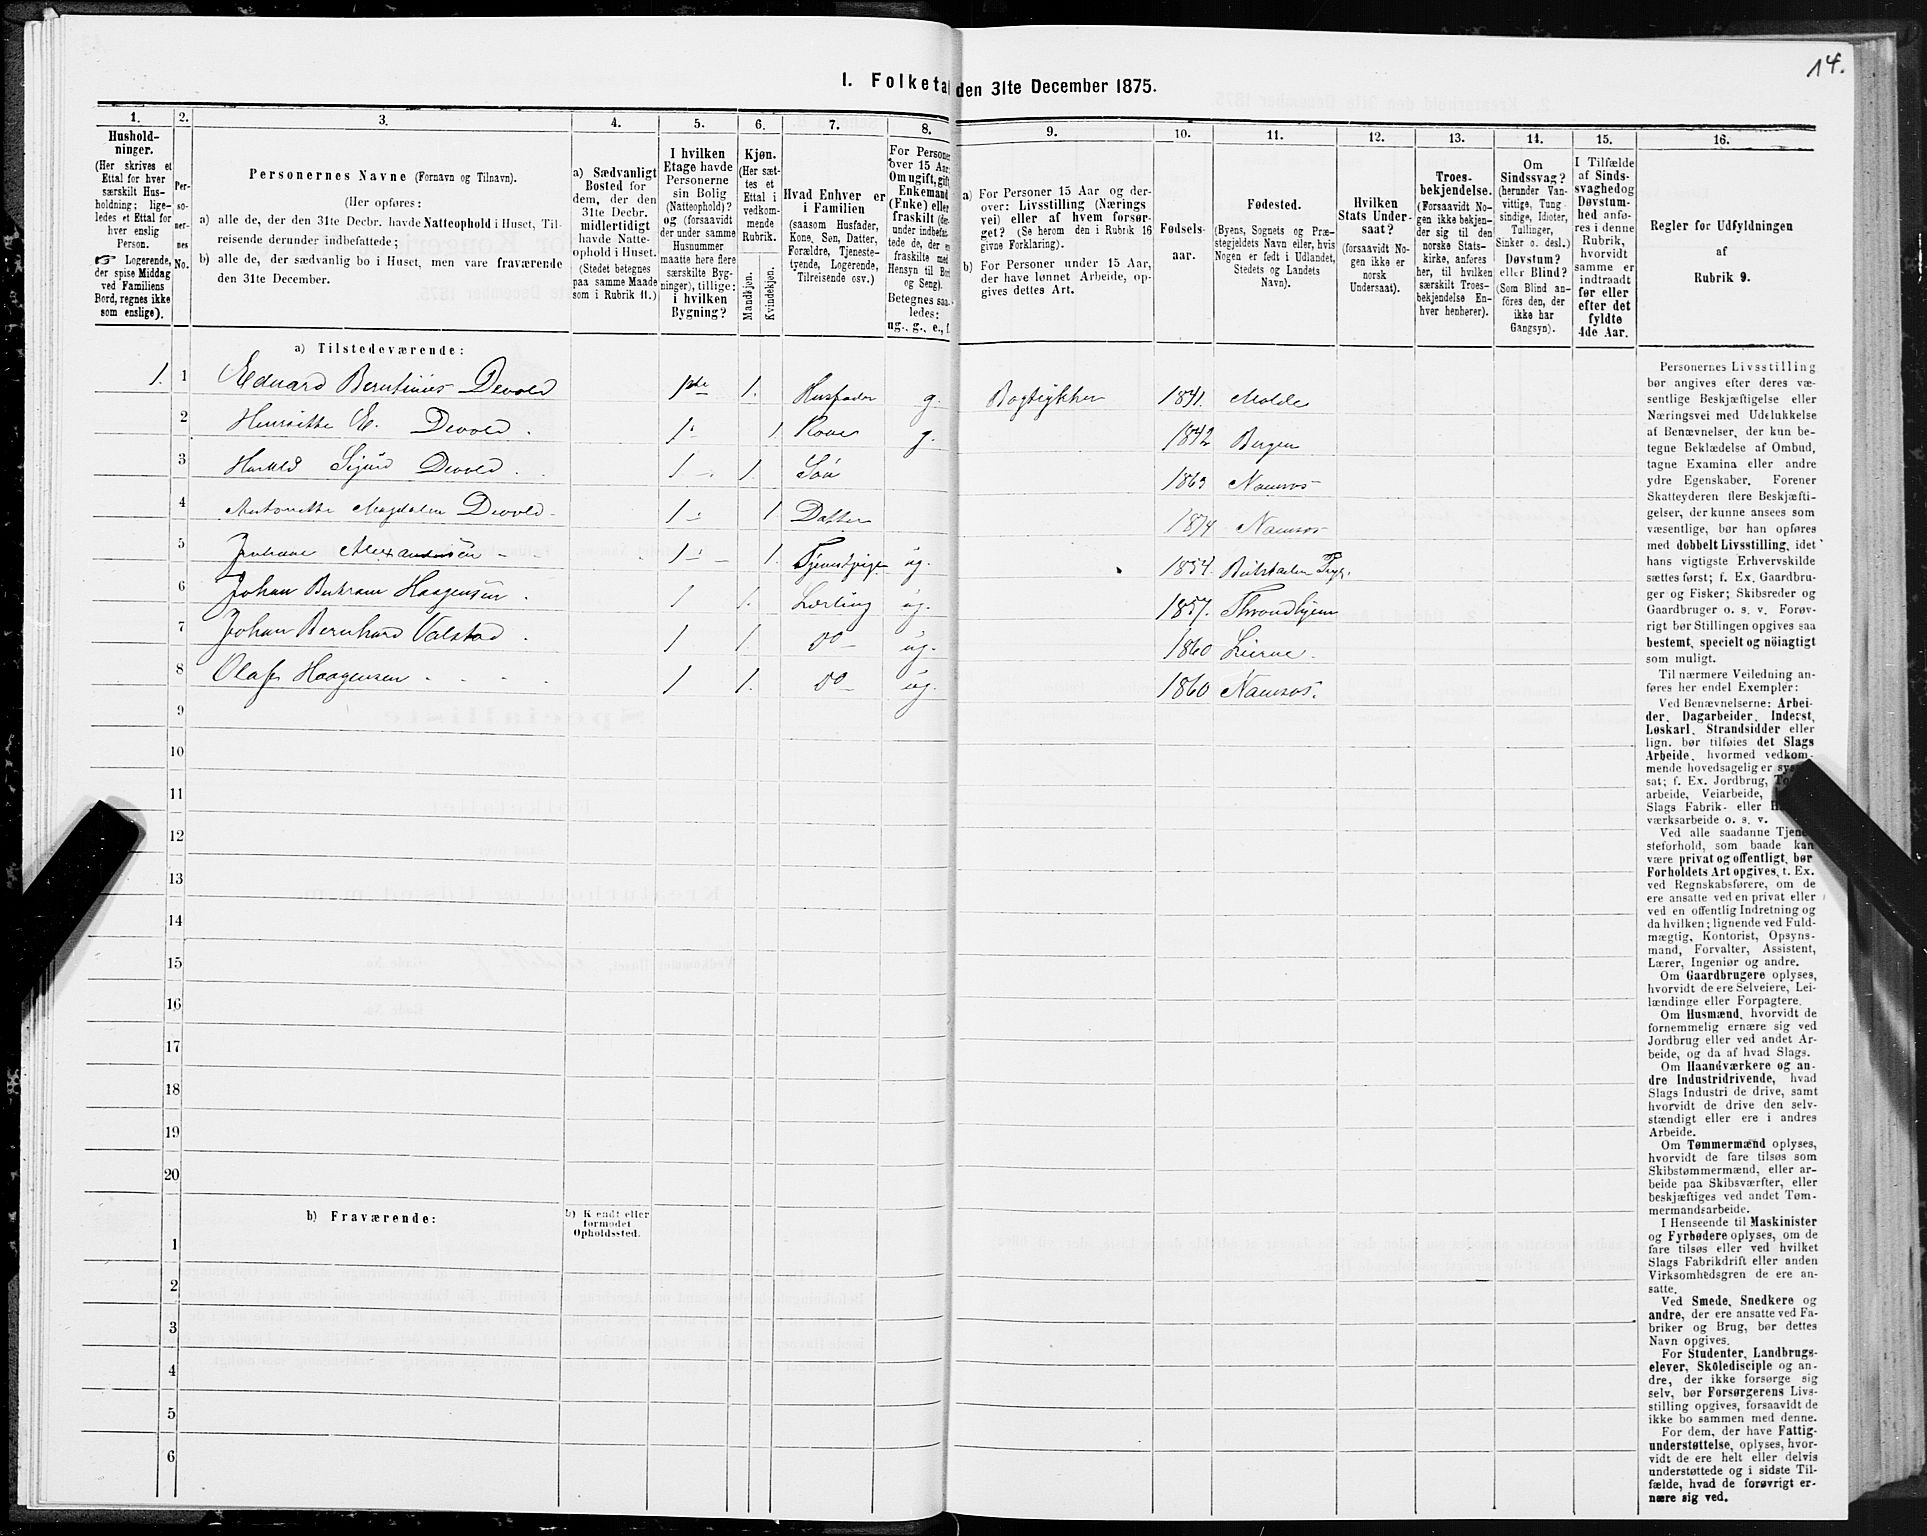 14.
I. Folketal den 31te December 1875.
1. 2. 3. 4. 5. 6. 7. 8. 9. 10. 11. 12. 13. 14. 15. 16.
Hushold-
ninger.
(Her skrives et
Ettal for hver
særskilt Hus-
holdning; lige-
ledes et Ettal for
hver enslig
Person.
☞ Logerende,
der spise Middag
ved Familiens
Bord, regnes ikke
som enslige).
Per-
so-
ner-
nes
No.
Personernes Navne (Fornavn og Tilnavn).
(Her opføres:
a) alle de, der den 31te Decbr. havde Natteophold i Huset, Til-
reisende derunder indbefattede;
b) alle de, der sædvanlig bo i Huset, men vare fraværende
den 31te December.
a) Sædvanligt
Bosted for
dem, der den
31te Decbr.
midlertidigt
havde Natte-
ophold i Huset.
(Stedet betegnes
paa samme Maade
som i Rubrik 11.)
I hvilken
Etage havde
Personerne
sin Bolig
(Natteophold)?
og (forsaavidt
der under samme
Husnummer
maatte here flere
særskilte Byg-
ninger), tillige:
i hvilken
Bygning?
Kjøn.
(Her sæt-
tes et
Ettal i
vedkom-
mende
Rubrik.
Mandkjøn.
Kvindekjøn.
Hvad Enhver er
i Familien
(saasom Husfader,
Kone, Søn, Datter,
Forældre, Tjeneste-
tyende, Logerende,
Tilreisende osv.)
For Personer
over 15 Aar:
Om ugift, gift,
Enkemand
(Enke) eller
fraskilt (der-
under indbefat-
tede de, der er
fraskilte med
Hensyn til Bord
og Seng).
Betegnes saa-
ledes:
ug., g., e., f.
a) For Personer 15 Aar og der-
over: Livsstilling (Nærings-
vei) eller af hvem forsør-
get? (Se herom den i Rubrik 16
givne Forklaring).
b) For Personer under 15 Aar,
der have lønnet Arbeide, op-
gives dettes Art.
Fødsels-
aar.
Fødested.
(Byens, Sognets og Præ-
stegjeldets Navn eller, hvis
Nogen er født i Udlandet,
Stedets og Landets
Navn).
Hvilken
Stats Under-
saat?
(forsaavidt No-
gen ikke er
norsk
Undersaat).
Troes-
bekjendelse.
(Forsaavidt No-
gen ikke bekjen-
der sig til den
norske Stats-
kirke, anføres
her, til hvilken
særskilt Troes-
bekjendelse En-
hver henhører).
Om
Sindssvag?
(herunder Van-
vittige, Tung-
sindige, Idioter,
Tullinger,
Sinker o. desl.)
Døvstum?
eller Blind?
(Som Blind an-
føres den, der
ikke har
Gangsyn).
I Tilfælde
af Sinds-
svaghed og
Døvstum-
hed anfø-
res i denne
Rubrik,
hvorvidt
samme er
indtraadt
før eller
efter det
fyldte
4de Aar.
Regler for Udfyldningen
af
Rubrik 9.
a) Tilstedeværende:
1. 1 Eduard Berntinus Devold 1ste 1. Husfader g. Bogtrykker 1841. Molde
2 Henriette E. Devold. 1 1 Kone g. 1842 Bergen
3 Harald Sigurd Devold. 1 1. Søn 1863 Namsos
4 Antonette Magdalen Devold 1 1 Datter 1874 Namsos
5 Alexandersen 1 1. Tjenestpige ug. 1854.
6 Johan Haagensen. 1 1. Lærling ug. 1857. Throndhjem
7 Johan Bernhard Valstad. 1 1. do ug. 1860 Lierne.
8 Olaf Haagensen 1 1. do ug. 1860 Namsos.
9
10
11
12
13
14
15
16
17
18
19
20
b) Fraværende:
b) Kjendt eller
formodet
Opholdssted.
1
2
3
4
5
6
Personernes Livsstilling
bør angives efter deres væ-
sentlige Beskjæftigelse eller
Næringsvei med Udelukkelse
af Benævnelser, der kun be-
tegne Beklædelse af Ombud,
tagne Examina eller andre
ydre Egenskaber. Forener
Skatteyderen flere Beskjæfti-
gelser, der kunne ansees som
væsentlige, bør han opføres
med dobbelt Livsstilling, idet
hans vigtigste Erhvervskilde
sættes først; f. Ex. Gaardbru-
ger og Fisker; Skibsreder og
Gaardbruger o. s. v. Forøv-
rigt bør Stillingen opgives saa
bestemt, specielt og nöiagtigt
som muligt.
Til nærmere Veiledning an-
føres her endel Exempler:
Ved Benævnelserne: Arbei-
der, Dagarbeider, Inderst,
Løskarl, Strandsidder eller
lign. bør tilføies det Slags
Arbeide, hvormed vedkom-
mende hovedsagelig er syssel-
sat; f. Ex. Jordbrug,
arbeide, Veiarbeide,
Slags Fabrik- eller
værksarbeide o. s. v.
Ved alle saadanne Tjene-
steforhold, som baade kan
være privat og offentligt, bør
Forholdets Art opgives, t. Ex.
ved Regnskabsførere, om de
ere ansatte ved en privat eller
ved en offentlig Indretning og
da hvilken; lignende ved Fuld-
mægtig, Kontorist, Opsyns-
mand, Forvalter, Assistent,
Lærer, Ingeniør og andre.
Om Gaardbrugere oplyses,
hvorvidt de ere Selveiere, Lei-
lændinge eller Forpagtere.
Om Husmænd, hvorvidt de
fornemmelig ernære sig ved
Jordbrug eller ved andet Ar-
beide, og da af hvad Slags.
Om Haandværkere og an-
dre Industridrivende, hvad
Slags Industri de drive, samt
hvorvidt de drive den selv-
stændigt eller ere i andres
Arbeide.
Om Tømmermænd oplyses,
hvorvidt de fare tilsøs som
Skibstømmermænd, eller ar-
beide paa Skibsværfter, eller
beskjæftiges ved andet Tøm-
mermandsarbeide.
I Henseende til Maskinister
og Fyrbødere oplyses, om de
fare tilsøs eller ved hvilket
Slags Fabrikdrift eller anden
Virksomhedsgren de ere an-
satte.
Ved Smede, Snedkere og
andre, der ere ansatte ved Fa-
briker og Brug, bør dettes
Navn opgives.
For Studenter, Landbrugs-
elever, Skoledisciple og an-
dre, der ikke forsørge sig
selv, bør Forsørgerens Livs-
stilling opgives, forsaavidt de
ikke bo sammen med denne.
For dem, der have Fattig-
understøttelse, oplyses, hvor-
vidt de ere helt eller delvis
understøttede og i sidste Til-
fælde, hvad de forøvrigt er-
nære sig ved.